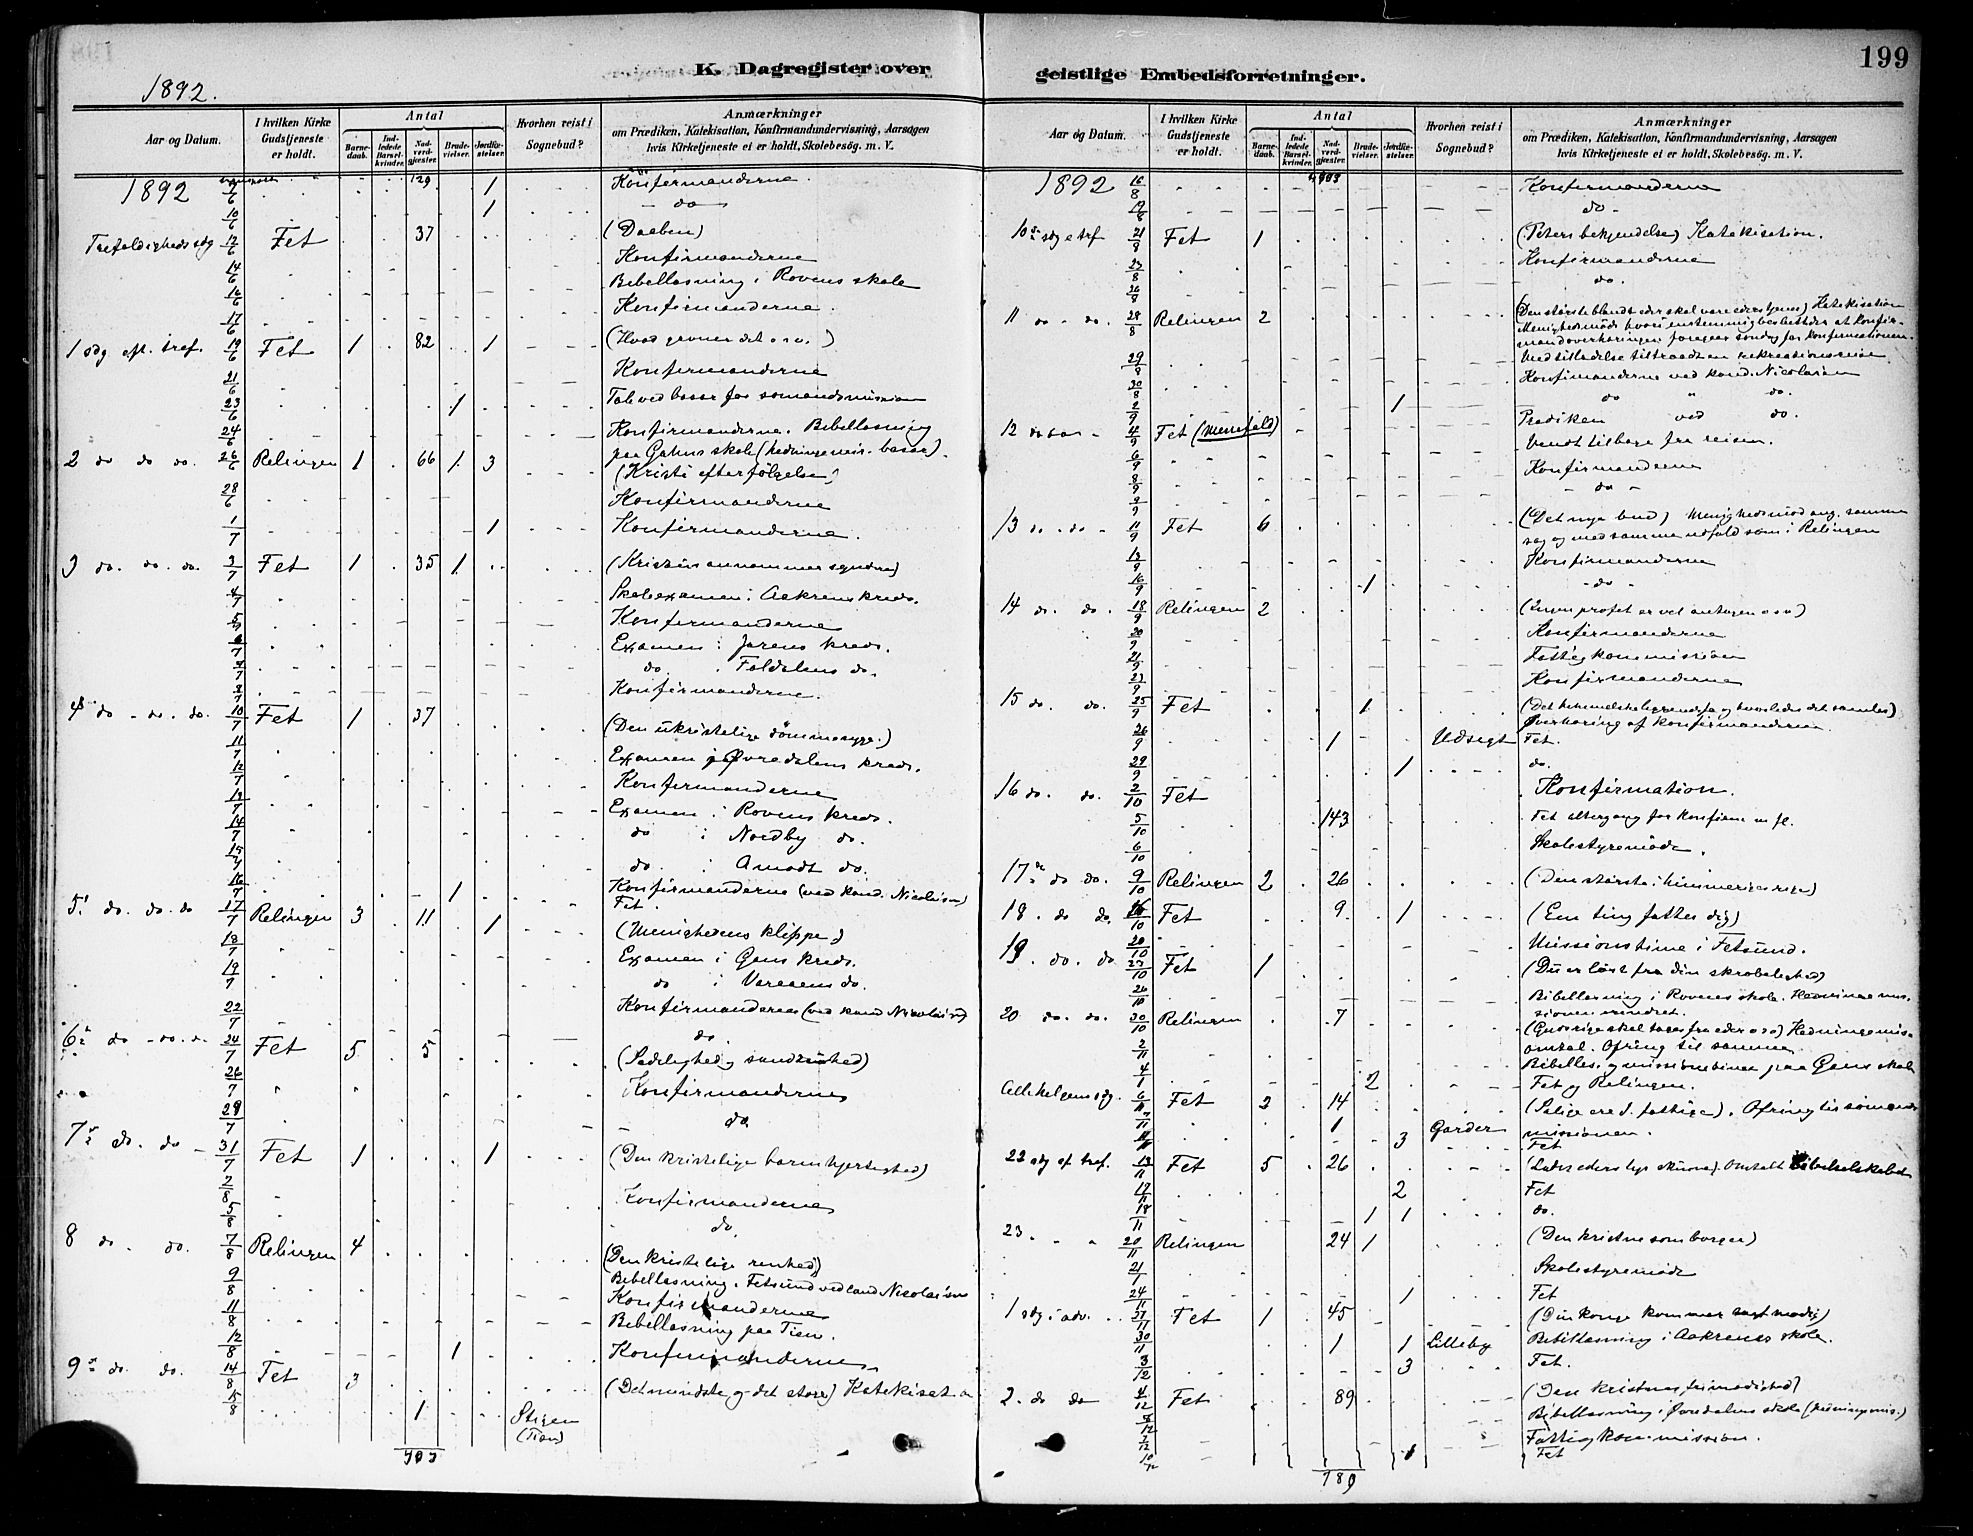 199
K. Dagregister over
geistlige Embedsforretninger.
1892.
Aar og Datum.
I hvilken Kirke Gudstjeneste er holdt.
Antal
Barnedaab.
Indledede Barselkvinder.
Nadverdgjester.
Brudevielser.
Jordfæstelser.
Hvorhen reist i Sognebud?
Anmærkninger
om Prædiken, Katekisation, Konfirmandundervisning, Aarsagen
hvis Kirketjeneste ei er holdt, Skolebesøg. m. V.
1892 129 1 Konfirmanderne
10/6 1 do
Trefoldighedssdg 12/6 Fet 37 (Daaben)
14/6 Konfirmanderne
16/6 Bibellæsning i Rovens skole
17/6 Konfirmanderne.
1 sdg eft. tref. 19/6 Fet 1 82 1 (Hvad gavner det osv.)
21/6 Konfirmanderne
23/6 1 Tale ved basar for sømandsmission
24/6 Konfirmanderne. Bibellæsning
2 do do do. 26/6 Relingen 1 66 1. 3 paa Gahns skole (hedningemis. basar).
(Kristi efterfølgelse)
28/6 Konfirmanderne
1/7 1 Konfirmanderne.
3 do. do. do. 3/7 Fet 1 35 1. (Kristus annammer syndere)
4/7 Skoleexamen i Aakrens kreds.
5/7 Konfirmanderne
6/7 Examen i Jarens kreds.
7/7 do. i Faldalens do.
8/7 Konfirmanderne.
4 do - do. do. 10/7 Fet 1 37 (Den ukristelige dømmesyge.)
11/7 Examen i Øvredalens kreds.
12/7 Konfirmanderne
13/7 Examen i Rovens kreds.
14/7 do i Nordby do.
15/7 do. i Amodt do.
16/7 1 Konfirmanderne (ved kand. Nicolaisen)
Fet.
5. do. do. do 17/7 Relingen 3 11 1 (Menighedens klippe)
18/7 Examen i Gans kreds.
19/7 do i Vareens do.
22/7 Konfirmanderne (ved kand Nicolaisen)
do.
6 do - do. d. 24/7 Fet 5 5 (Sædelighed og sandruhed)
26/7 Konfirmanderne
29/7 do.
7 do. do - 31/7 Fet 1 1 (Den kristelige barmhjertighed)
2/8 Konfirmanderne
5/8 do.
8 do. do. 7/8 Relingen 4 (Den kristelige renhed)
9/8 Bibellæsning i Fetsund ved cand Nicolaisen
11/8 Konfirmanderne
12/8 Bibellæsning paa Tien.
1 Konfirmanderne
9 do. do. 14/8 Fet 3 (Det mindste og det store) Katekisat
15/8 1 Stigen
(Tien)
703
Aar og Datum.
I hvilken Kirke Gudstjeneste er holdt.
Antal
Barnedaab.
Indledede Barselkvinder.
Nadverdgjester.
Brudevielser.
Jordfæstelser.
Hvorhen reist i Sognebud?
Anmærkninger
om Prædiken, Katekisation, Konfirmandundervisning, Aarsagen
hvis Kirketjeneste ei er holdt, Skolebesøg. m. V.
1892 16/8 Konfirmanderne
do
10 sdg e tref 21/8 Fet 1 (Peters bekjendelse) Katekisation.
23/8 Konfirmanderne
26/8 do.
11 do - do. 28/8 Relingen 2 (Den største blandt eder skal være eders tjener) Katekisation
Menighedsmøde hvori enstemmig besluttedes at konfir-
mandoverhøringen foregaar søndag før konfirmationen.
29/8 Med tilladelse tiltraadt en rekreationsreise
30/8 Konfirmanderne ved kand. Nicolaisen
2/9 1 do " do.
12 4/9 Fet (Messefald) Prædiken ved do.
6/9 Vendt tilbage fra reisen.
8/9 Konfirmanderne
9/9 - do -
13 do - do - 11/9 Fet 6 (Det nye bud) Menighedsmøde ang. samme
sag og med samme udfald som i Relingen
13/9 Konfirmanderne
16/9 1 - do -
14 do. do. 18/9 Relingen 2 (Ingen profet er vel antagen osv)
20/9 Konfirmanderne
21/9 Fattigkommission
23/9 Konfirmanderne
15 do. do. 25/9 Fet 1
Overhøring af konfirmanderne
26/9 1 Udsigt Fet.
29/9 1 do.
16 do. do. 2/10 Fet Konfirmation.
5/10 143 Fet altergang for konfirm m fl.
6/10 Skolestyremøde.
17 do do. 9/10 Relingen 2 26 (Den største i himmeriges rige)
18. do do. 16/10 Fet 9. 1 (Een ting fattes dig)
20/10 Missionstime i Fetsund.
19. do. do 23/10 Fet 1 (Du er løst fra din skrøbelighed)
26/10 Bibellæsning i Rovens skole. Hedningemis-
sionen erindret.
20 do. do. 30/10 Relingen 7 (Guds rige skal tages fra eder osv) Hedningemis-
omtal. Ofring til samme
2/11 Bibellæs. og missionstime paa Gans skole
4/11 2 Fet og Relingen.
Allehelgenssdg. 6/11 Fet 3 14 (Salige ere d. fattige). Ofring til sømands
7/11 1 Garder missionen.
11/11 3 Fet
22 sdg ef tref. 13/11 Fet 5 26 Omtalt Bibelselskabet
17/11 2 Fet
18/11 1 1 do.
23 " " 20/11 Relingen 24 1 (Den kristne som borger)
21/11 Skolestyremøde
24/11 1 Fet
1 sdg i adv. 27/11 Fet 1 45 (Din konge kommer sagtmodig)
30/11 1 1 Lilleby Bibellæsning i Aakrenes skole.
3/12 3 Fet.
2. do do 4/12 Fet 89 (Den kristnes frimodighed)
Bibellæsning i Øvredalens skole (hedningemis.)
7/12 Fattigkommission.
10/12 1 Fet
789